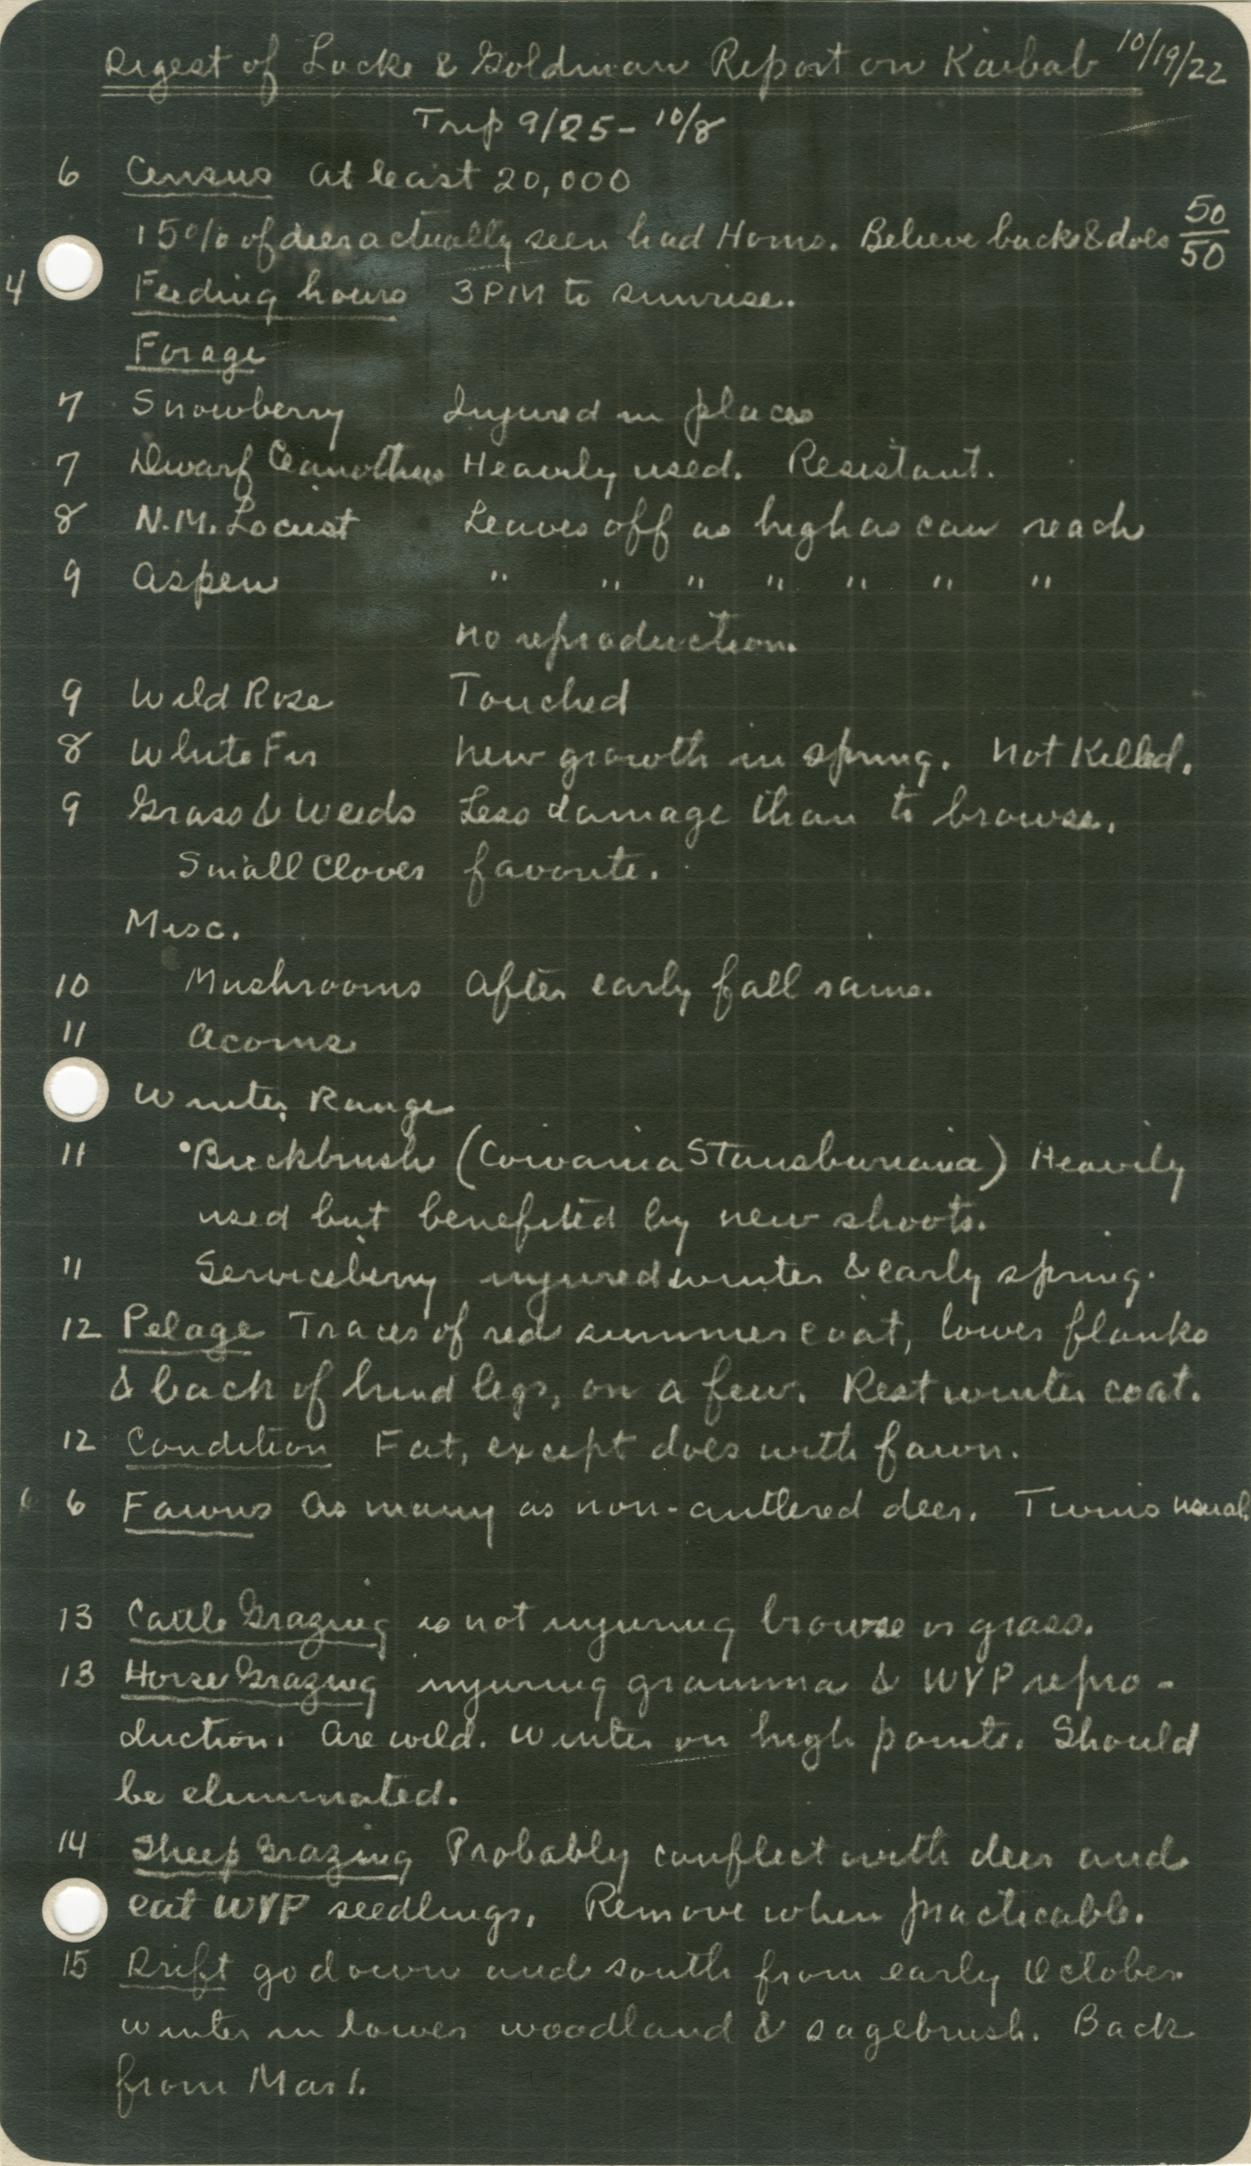 Digest of Locke & Goldman Report on Kaibab 10/19/22
Trip 9/25 - 10/8
6 Census at least 20,000
15% of deer actually seen had Horns. Believe bucks & does 50/50
4 Feeding hours 3PM to sunrise.
Forage
7 Snowberry Injured in places
7 Dwarf Ceanothus Heavily used. Resistant.
8 N.M. Locust Leaves off as high as can reach
9 Aspen " " " " " " "
no reproduction.
9 Wild Rose Touched
8 White Fir new growth in spring. not Killed.
9 Grass & Weeds Less damage than to browse.
Small Clover favorite.
Misc.
10 Mushrooms after early fall rains.
11 Acorns
Winter Range
11 Buckbrush (Cowania Stansburiana) Heavily
used but benefited by new shoots.
11 Serviceberry injured winter & early spring.
12 Pelage Traces of red summer coat, lower flanks
& back of hind legs, on a few. Rest winter coat.
12 Condition Fat, except does with fawn.
6 6 Fawns as many as non-antlered deer. Twins usual.
13 Cattle Grazing is not injuring browse or grass.
13 Horse Grazing injuring gramma & WYP repro-
duction. Are wild. Winter on high points. Should
be eliminated.
14 Sheep Grazing Probably conflict with deer and
eat WYP seedlings. Remove when practicable.
15 Drift go down and south from early October
winter in lower woodland & sagebrush. Back
from Mar 1.